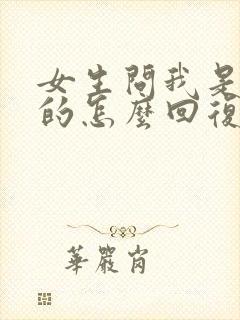 女生問我是
的怎麼回復
華嚴肖